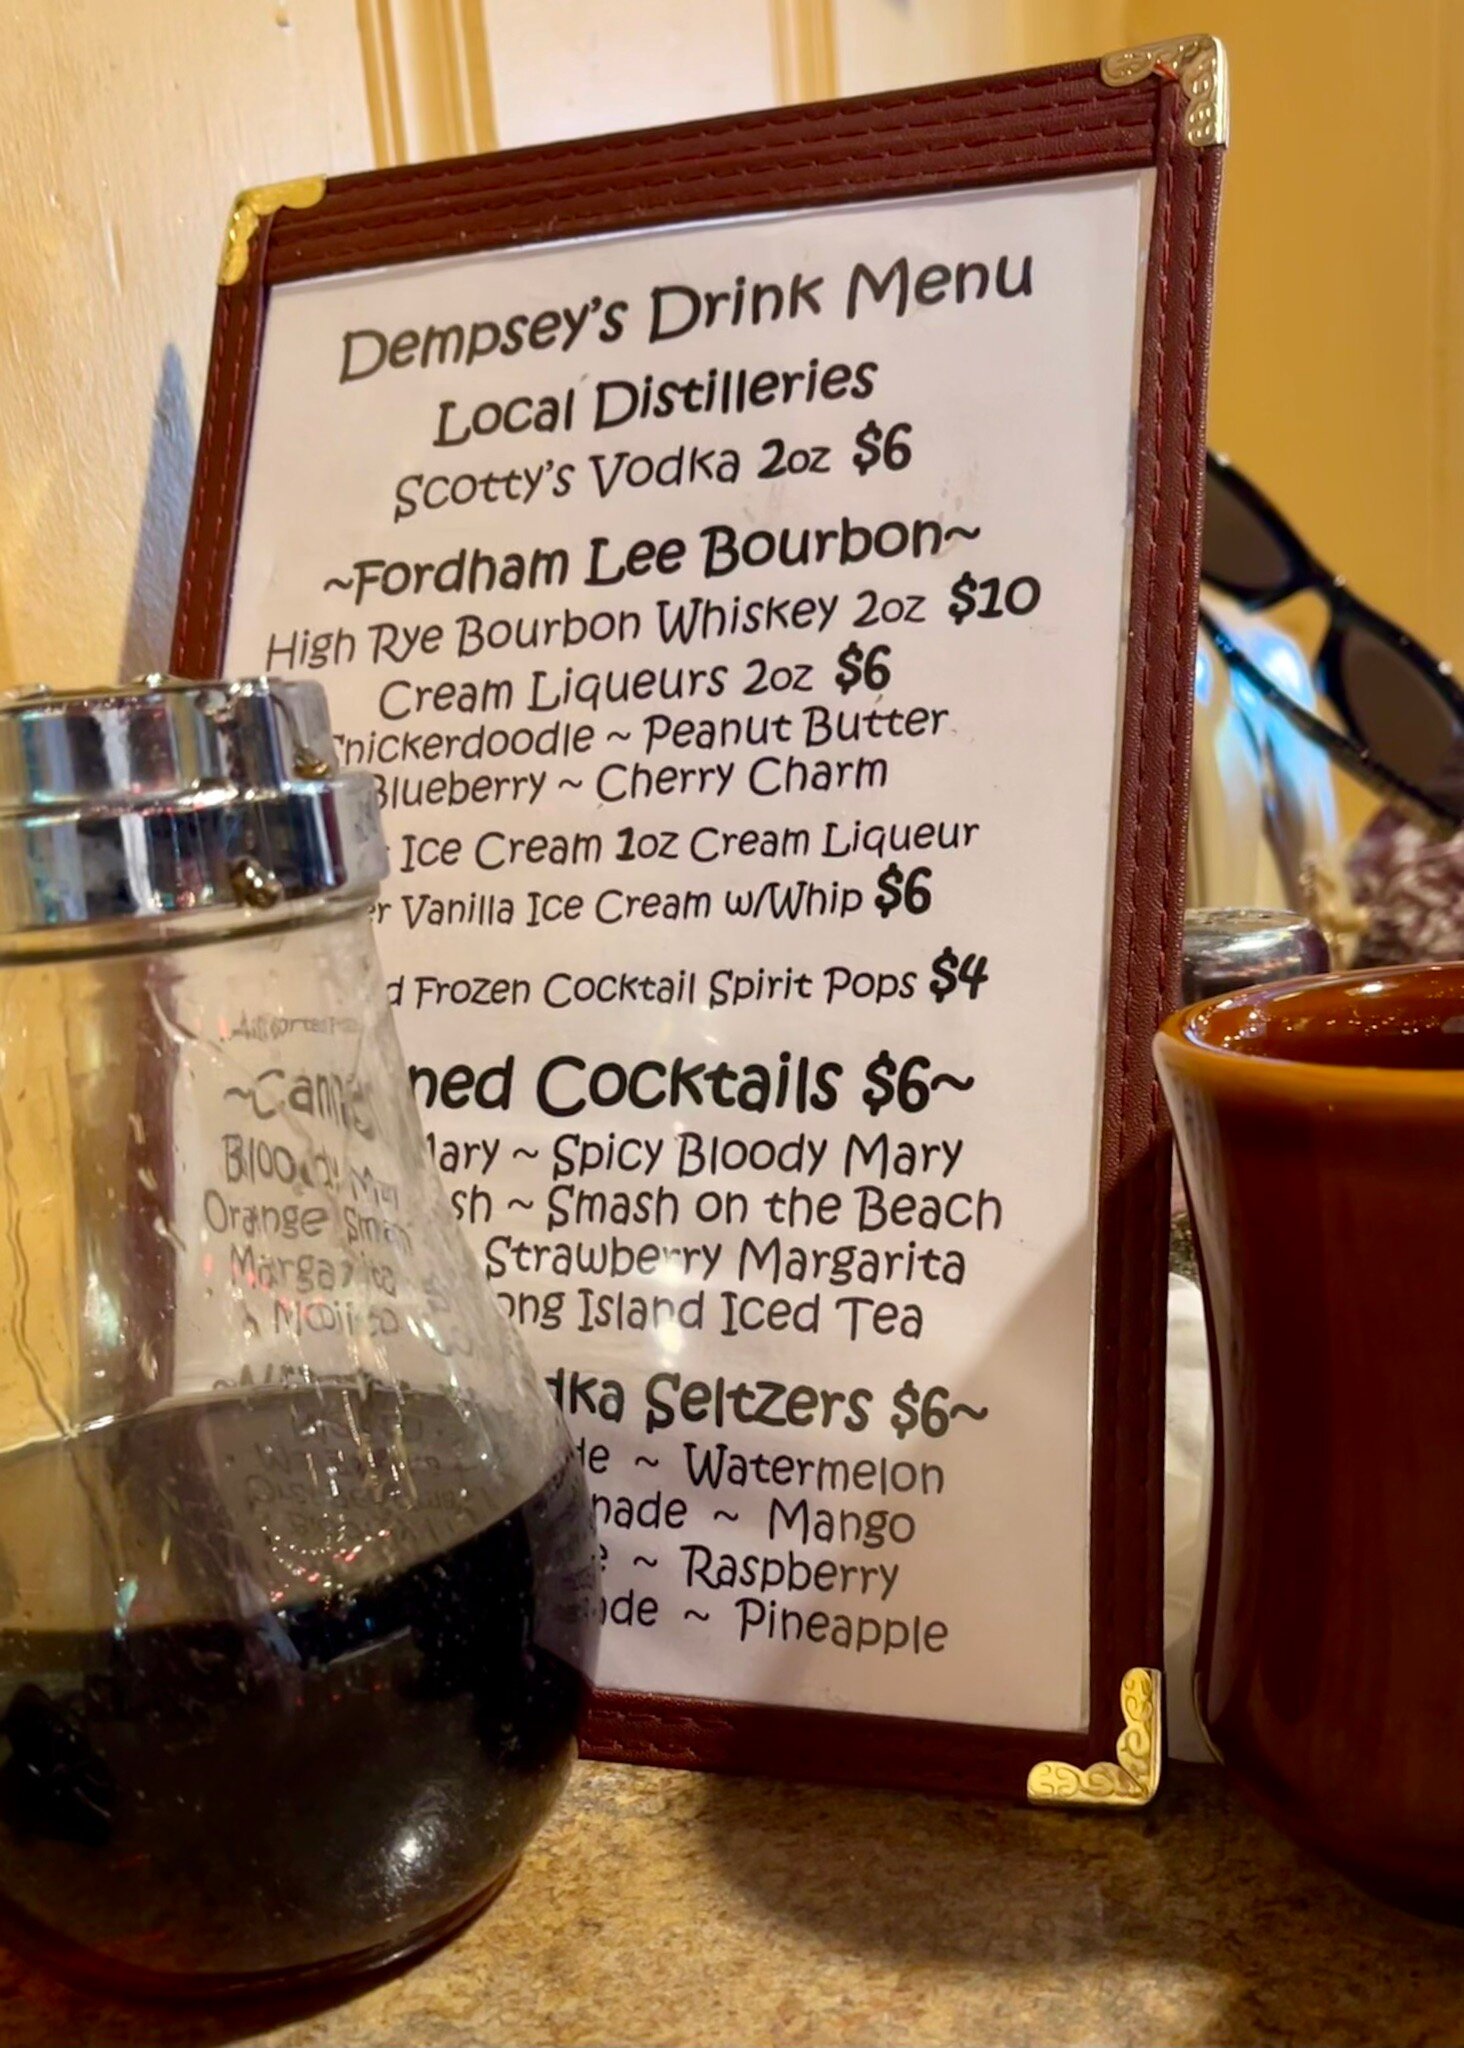 Dempsey's Drink Menu
Local Distilleries
Scotty's Vodka 2oz $6
~Fordham Lee Bourbon~
High Rye Bourbon Whiskey 2oz $10
Cream Liqueurs 2oz $6
Snickerdoodle ~ Peanut Butter
Blueberry ~ Cherry Charm
Ice Cream 1oz Cream Liqueur
Vanilla Ice Cream w/Whip $6
Frozen Cocktail Spirit Pops $4
~Canned Cocktails $6~
Bloody Mary ~ Spicy Bloody Mary
Orange Smash ~ Smash on the Beach
Margarita Strawberry Margarita
Mojito Long Island Iced Tea
Vodka Seltzers $6~
~ Watermelon
~ Mango
~ Raspberry
~ Pineapple